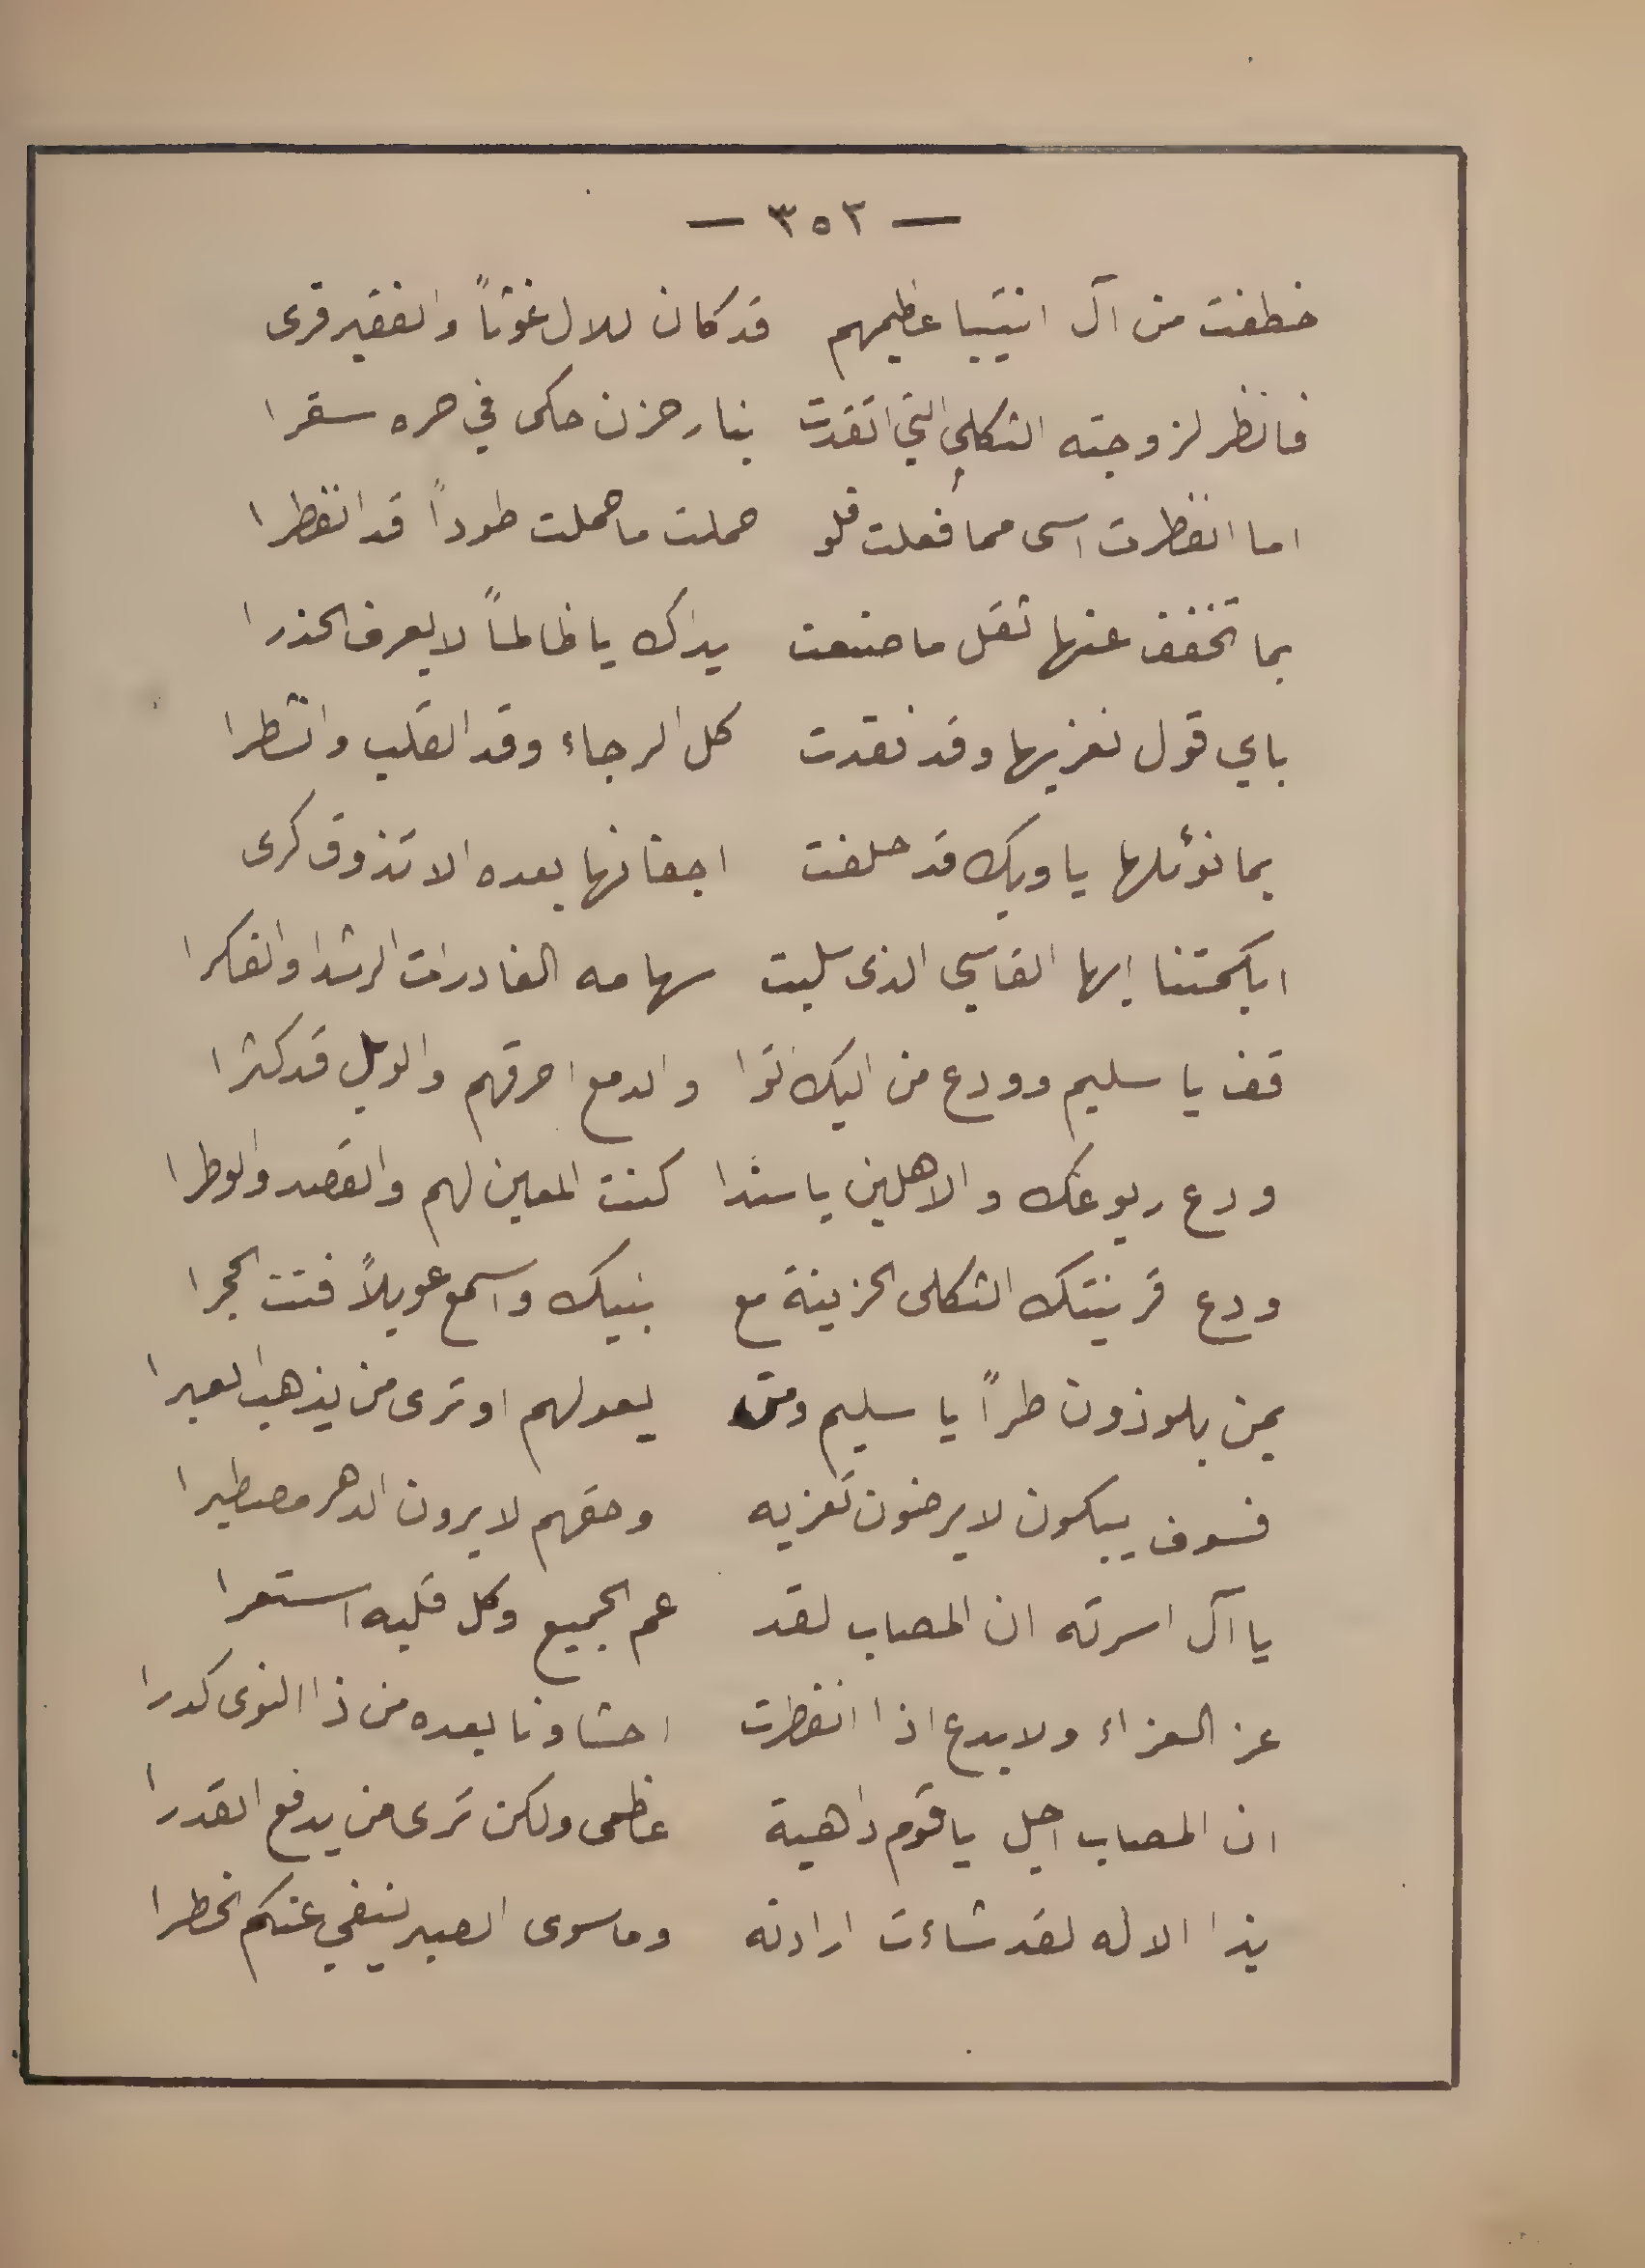 — ٣٥٢ —
خطفت من آل انتيبا عظيمهم قد كان للال غوثاً والفقير قرى
فانظر لزوجته الثكلى التي اتقدت بنار حزن حكى في حره سقرا
اما انفطرت اسى مما فعلت فلو حملت ما حملت طوداً قد انفطرا
بما تخفف عنها ثقل ما صنعت يداك يا ظالماً لا يعرف الحذرا
باي قول نعزيها وقد فقدت كل الرجاء وقد القلب وانشطرا
بما نؤملها يا ويك قد حلفت اجفانها بعده الا تذوق كرى
ابكمتنا ايها القاسي الذي سلبت سهامه الغادرات الرشدا والفكرا
قف يا سليم وودع من اليك اتوا والدمع احرقهم والويل قد كثرا
ودع ربوعك والاهلين يا سندا كنت المعين لهم والقصد والوطرا
ودع قرينتك الثكلى الحزينة مع بنيك واسمع عويلاً فتت الحجرا
بمن يلوذون طراً يا سليم ومن يعولهم او ترى من يذهب العبرا
فسوف يبكون لا يرضون تعزيه وحقهم لا يرون الدهر مصطبرا
يا آل اسرته ان المصاب لقد عم الجميع وكل قلبه استعرا
عز العزاء ولا بدع اذا انفطرت احشاونا بعده من ذا النوى كدرا
ان المصاب اجل يا قوم داهية عظمى ولكن ترى من يدفع القدرا
بذا الاله لقد شاءت ارادته وما سوى الصبر ينفي عنكم الخطرا